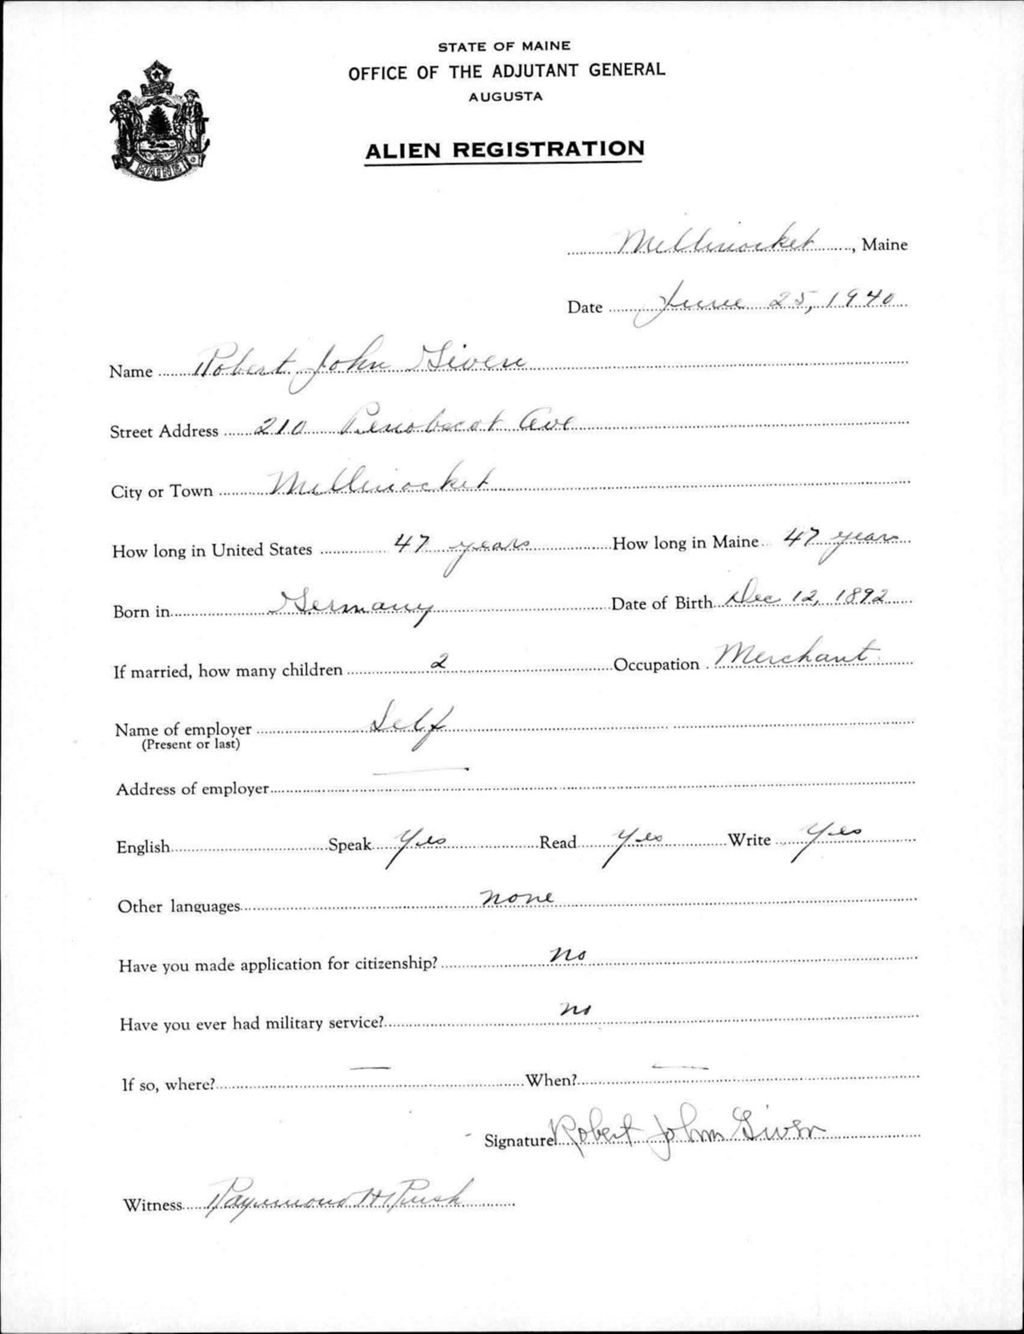 STATE OF MAINE
OFFICE OF THE ADJUTANT GENERAL
AUGUSTA
ALIEN REGISTRATION
MAINE
Millinocket, Maine
Date June 25, 1940
Name Robert John Given
Street Address 210 Penobscot Ave
City or Town Millinocket
How long in United States 47 years How long in Maine 47 years
Born in Germany Date of Birth Dec 12, 1892
If married, how many children 2 Occupation Merchant
Name of employer Self
(Present or last)
Address of employer —
English Speak Yes Read Yes Write Yes
Other languages none
Have you made application for citizenship? no
Have you ever had military service? no
If so, where? — When? —
Signature Robert John Given
Witness Raymond H Rush